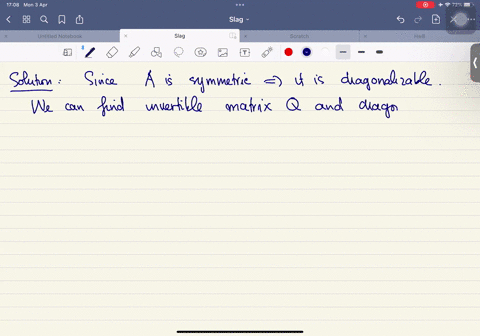 17:08 Mon 3 Apr
73%
Slag
Untitled Notebook Slag Scratch
Solution: Since A is symmetric ⟹ it is diagonalizable.
We can find invertible matrix Q and diago